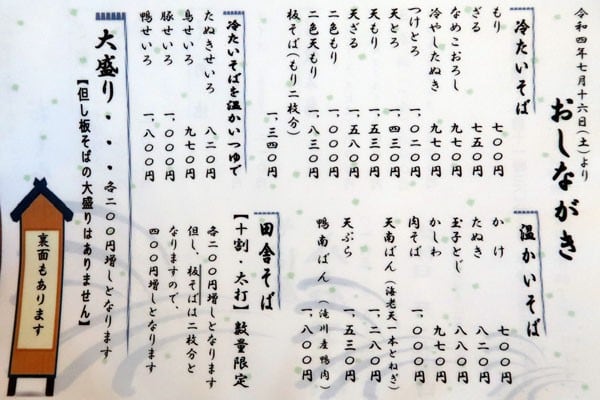 令和四年七月十六日(土)より
おしながき
冷たいそば
もり 七〇〇円
ざる 七五〇円
なめこおろし 九七〇円
冷やしたぬき 九七〇円
つけとろ 一、〇二〇円
天とろ 一、四三〇円
天もり 一、五三〇円
天ざる 一、五八〇円
二色もり 一、〇〇〇円
二色天もり 一、八三〇円
板そば(もり二枚分) 一、三四〇円
冷たいそばを温かいつゆで
たぬきせいろ 八二〇円
鳥せいろ 九七〇円
豚せいろ 一、〇〇〇円
鴨せいろ 一、八〇〇円
温かいそば
かけ 七〇〇円
たぬき 八二〇円
玉子とじ 八八〇円
かしわ 九七〇円
肉そば 一、〇〇〇円
天南ばん(海老天一本とねぎ) 一、二八〇円
天ぷら 一、五三〇円
鴨南ばん(滝川産鴨肉) 一、八〇〇円
田舎そば
【十割・太打】数量限定
各二〇〇円増しとなります
但し、板そばは二枚分と
なりますので、
四〇〇円増しとなります
大盛り・・・各二〇〇円増しとなります
【但し板そばの大盛りはありません】
裏面もあります